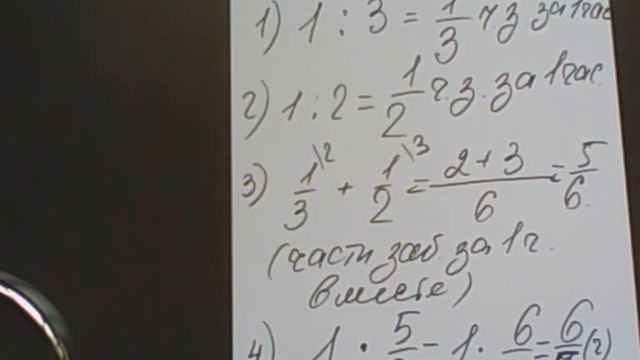 1) 1 : 3 = 1/3 ч.з за 1 час
2) 1 : 2 = 1/2 ч.з. за 1 час.
3) 1/3 \2 + 1/2 \3 = 2+3/6 = 5/6.
(части заб. за 1 ч.
вместе)
4) 1 : 5/6 = 1 · 6/5 = 6/5 (ч)